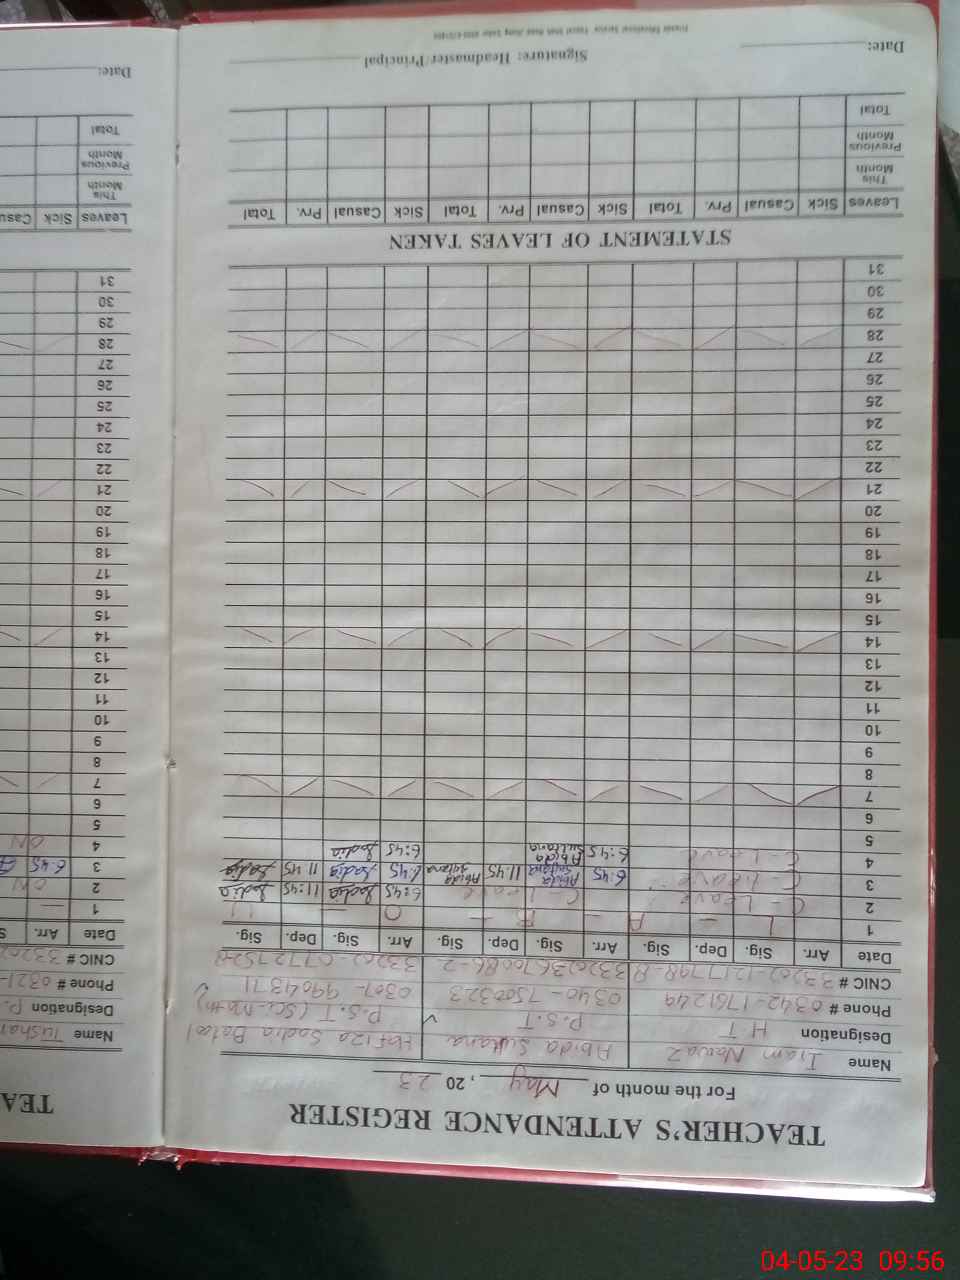 TEACHER'S ATTENDANCE REGISTER
For the month of May, 2023
Name Iram Nawaz Abida Sultana Hafiza Sadia Batool
Designation H T P.S.T P.S.T (Sci-Math)
Phone # 0342-1761249 0340-7500323 0307-9904371
CNIC # 33202-1217798-8 332023670086-2 33202-0772752-8
Date Arr. Sig. Dep. Sig. Arr. Sig. Dep. Sig. Arr. Sig. Dep. Sig.
1 L - A - B - O -
2 C - Leave C - Leave 6:45 Sadia 11:45 Sadia
3 C Leave 6:45 Abida Sultana 11:45 Abida Sultana 6:45 Sadia 11:45 Sadia
4 C Leave 6:45 Abida Sultana 6:45 Sadia
5
6
7
8
9
10
11
12
13
14
15
16
17
18
19
20
21
22
23
24
25
26
27
28
29
30
31
STATEMENT OF LEAVES TAKEN
Leaves Sick Casual Prv. Total Sick Casual Prv. Total Sick Casual Prv. Total
This Month
Previous Month
Total
Date: Signature: Headmaster/Principal
TEA
Name
Designation P.
Phone # 0321-
CNIC # 33202
Date Arr. S
1 —
2 ON
3 6:45
4 ON
5
6
7
8
9
10
11
12
13
14
15
16
17
18
19
20
21
22
23
24
25
26
27
28
29
30
31
Leaves Sick Casu
This Month
Previous Month
Total
Date:
04-05-23 09:56